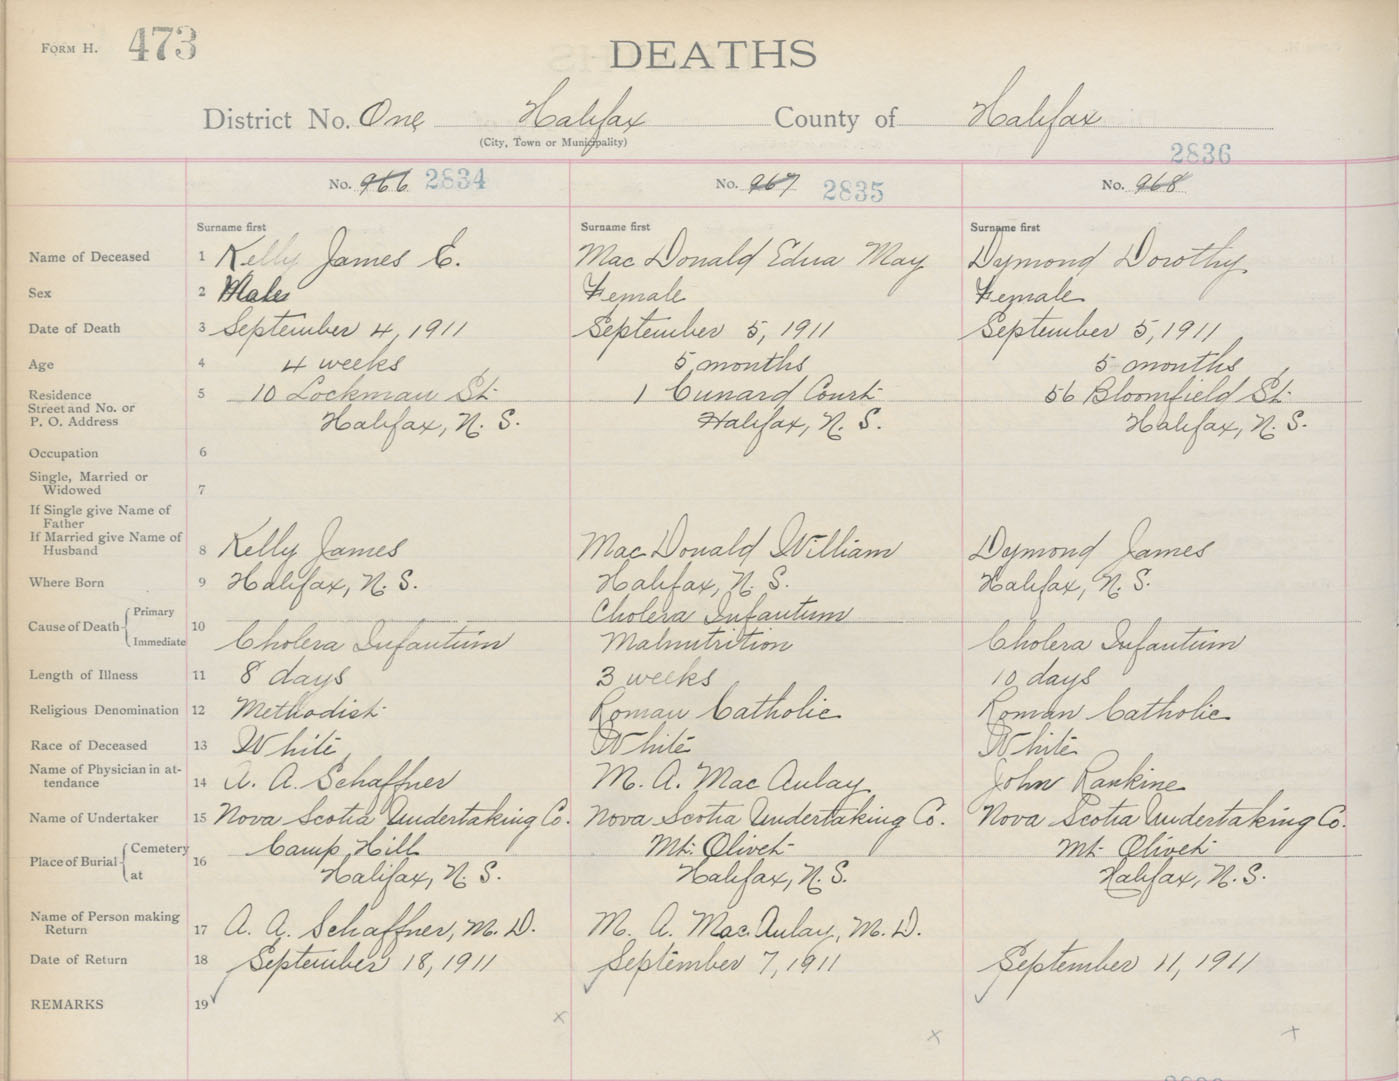 FORM H. 473
DEATHS
District No. One Halifax County of Halifax
(City, Town or Municipality)
2836
No. 966 2834 No. 967 2835 No. 968
Surname first Surname first Surname first
Name of Deceased 1 Kelly James E. Mac Donald Edna May Dymond Dorothy
Sex 2 Male Female Female
Date of Death 3 September 4, 1911 September 5, 1911 September 5, 1911
Age 4 4 weeks 5 months 5 months
Residence 5 10 Lockman St. 1 Cunard Court 56 Bloomfield St.
Street and No. or
P. O. Address Halifax, N. S. Halifax, N. S. Halifax, N. S.
Occupation 6
Single, Married or
Widowed 7
If Single give Name of
Father
If Married give Name of
Husband 8 Kelly James Mac Donald William Dymond James
Where Born 9 Halifax, N. S. Halifax, N. S. Halifax, N. S.
Cause of Death Primary 10 Cholera Infantum
Immediate Cholera Infantum Malnutrition Cholera Infantum
Length of Illness 11 8 days 3 weeks 10 days
Religious Denomination 12 Methodist Roman Catholic Roman Catholic
Race of Deceased 13 White White White
Name of Physician in at-
tendance 14 A. A. Schaffner M. A. Mac Aulay John Rankine
Name of Undertaker 15 Nova Scotia Undertaking Co. Nova Scotia Undertaking Co. Nova Scotia Undertaking Co.
Place of Burial Cemetery 16 Camp Hill Mt. Olivet Mt. Olivet
at Halifax, N. S. Halifax, N. S. Halifax, N. S.
Name of Person making
Return 17 A. A. Schaffner, M. D. M. A. Mac Aulay, M. D.
Date of Return 18 September 18, 1911 September 7, 1911 September 11, 1911
REMARKS 19